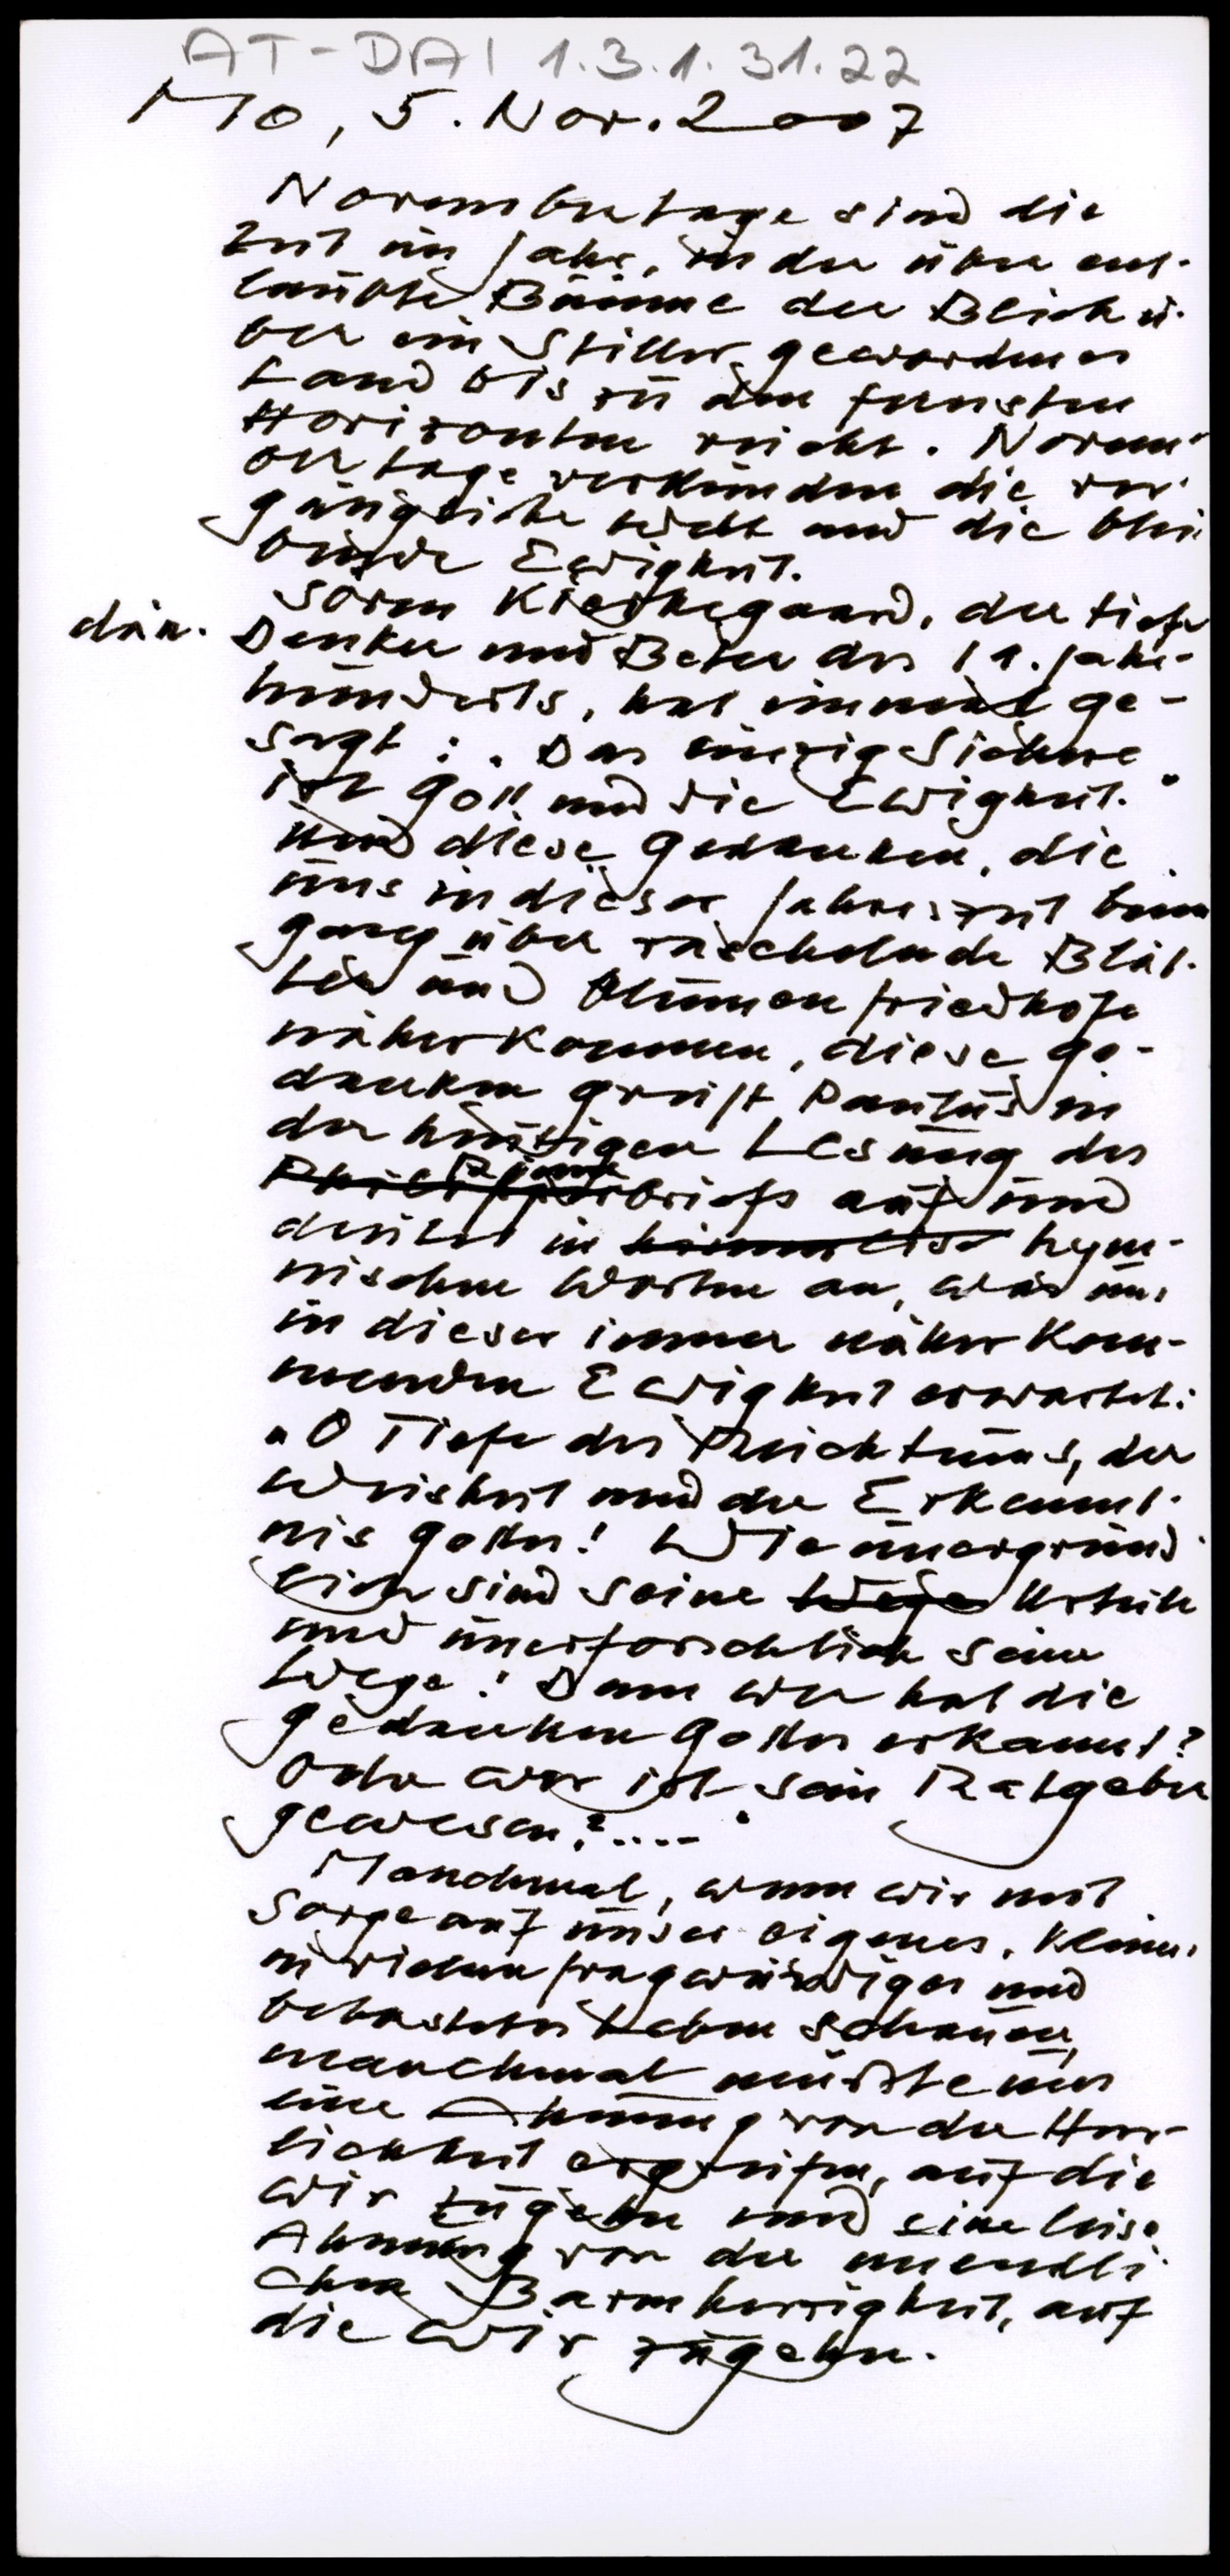 AT-DAI 1.3.1.31.22
Mo, 5. Nov. 2007
Novembertage sind die
Zeit im Jahr, in der über ent-
laubte Bäume der Blick ü-
ber ein stiller gewordenes
Land bis zu den fernsten
Horizonten reicht. Novem-
bertage verkünden die ver-
gängliche Welt und die blei
bende Ewigkeit.
Sören Kierkegaard, der tiefe
dän. Denker und Beter des 19. Jahr-
hunderts, hat einmal ge-
sagt: „Das einzig Sichere
ist Gott und die Ewigkeit."
Und diese Gedanken, die
uns in dieser Jahreszeit beim
Gang über raschelnde Blät-
ter und Blumenfriedhöfe
näherkommen, diese Ge-
danken greift Paulus in
der heutigen Lesung des
Römer
Philipperbriefs auf und
deutet in hymn-
nischen Worten an, was uns
in dieser immer näher kom-
menden Ewigkeit erwartet:
„O Tiefe des Reichtums, der
Weisheit und der Erkennt-
nis Gottes! Wie unergründ
lich sind seine Wege Urteile
und unerforschlich seine
Wege! Denn wer hat die
Gedanken Gottes erkannt?
Oder wer ist sein Ratgeber
gewesen?...."
Manchmal, wenn wir mit
Sorge auf unser eigenes, kleines,
in vielem fragwürdiges und
belastetes Leben schauen,
manchmal müßte uns
eine Ahnung von der Herr-
lichkeit ergreifen, auf die
wir zugehn und eine leise
Ahnung von der unendli
chen Barmherzigkeit, auf
die wir zugehn.